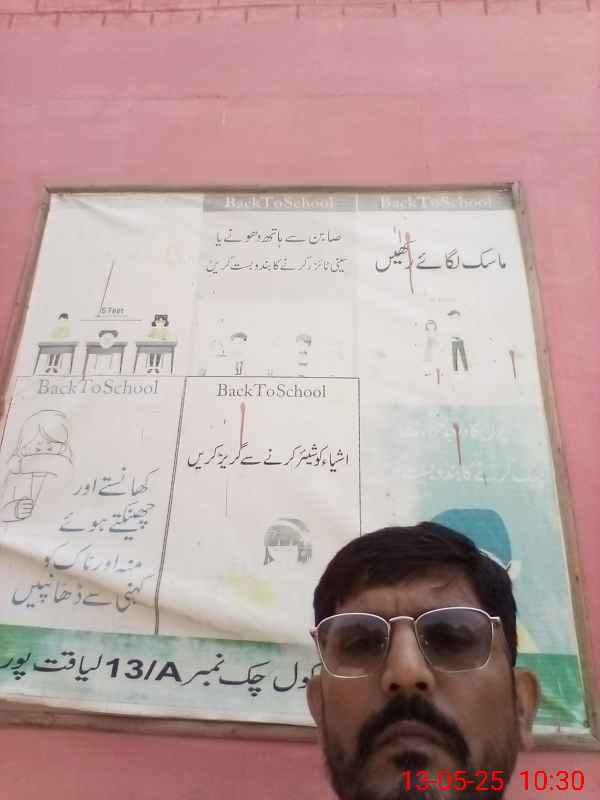 BackToSchool
صابن سے ہاتھ دھونے یا
سینی ٹائزر کرنے کا بندوبست کریں
BackToSchool
ماسک لگائے رکھیں
5 Feet
BackToSchool
کھانستے اور
چھینکتے ہوئے
منہ اور ناک کو
کہنی سے ڈھانپیں
BackToSchool
اشیاء کو شیئر کرنے سے گریز کریں
کول چک نمبر 13/A لیاقت پور
13-05-25 10:30